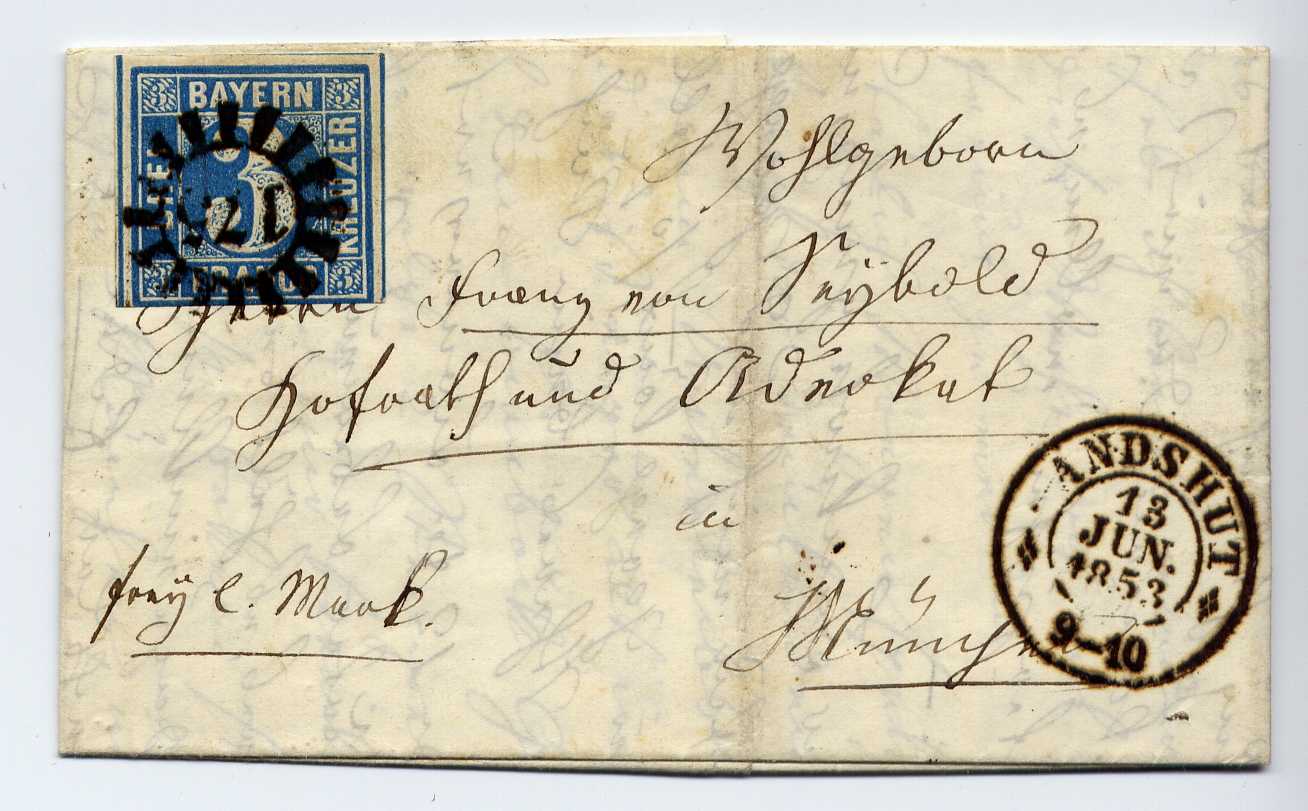 BAYERN
3 3
KREUZER
FRANCO
3 3
Wohlgeborn
Herrn Franz von Seybold
Hofrath und Advokat
in
München
frey l. Mark.
ANDSHUT
13
JUN.
1853
9-10